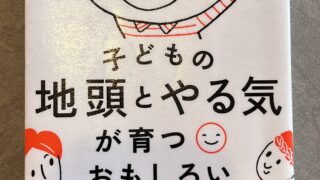 子どもの
地頭とやる気
が育つ
おもしろい